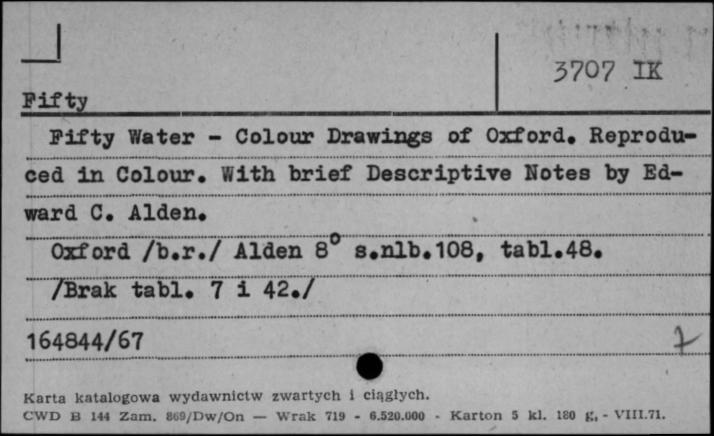 3707 IK
Fifty
Fifty Water - Colour Drawings of Oxford. Reprodu-
ced in Colour. With brief Descriptive Notes by Ed-
ward C. Alden.
Oxford /b.r./ Alden 8° s.nlb.108, tabl.48.
/Brak tabl. 7 i 42./
164844/67
Karta katalogowa wydawnictw zwartych i ciągłych.
CWD B 144 Zam. 869/Dw/On — Wrak 719 - 6.520.000 - Karton 5 kl. 180 g, - VIII.71.